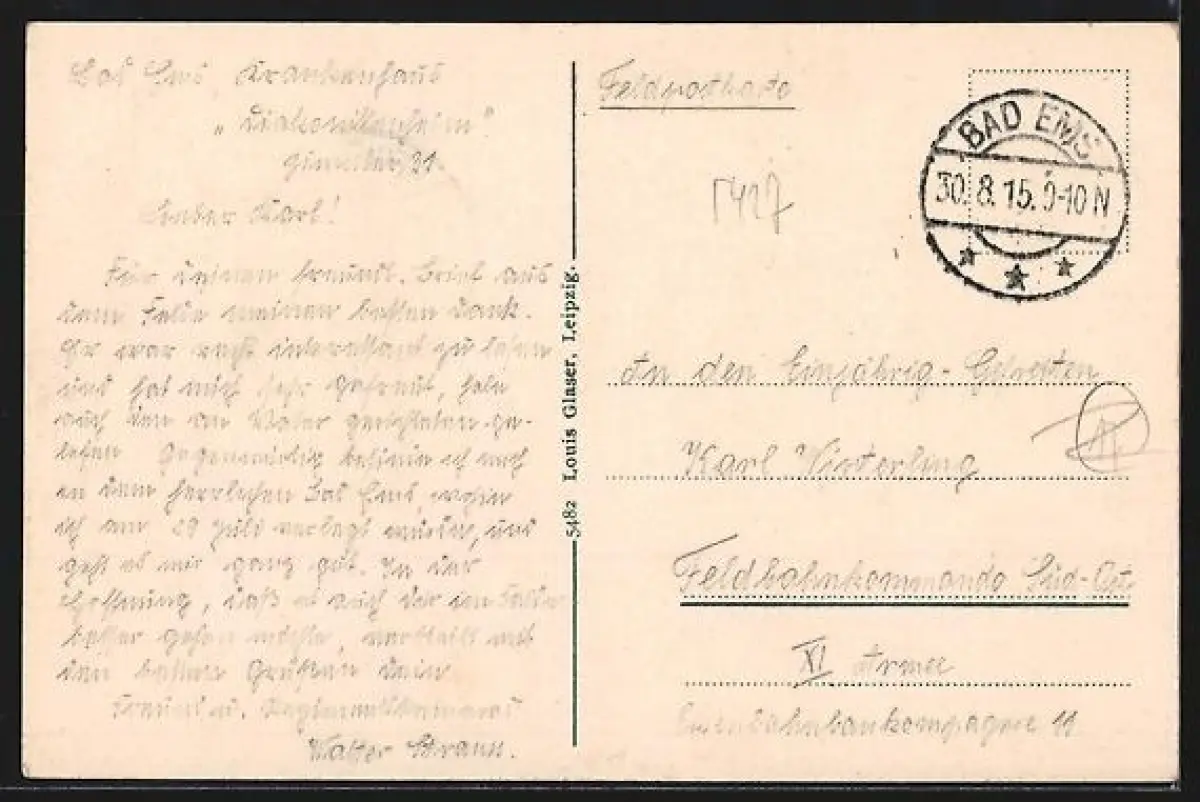 Bad Ems, Krankenhaus
„Diakonissenheim“
31.
Lieber Karl!
Für deinen freundl. Brief aus
dem Felde meinen besten Dank.
Er war recht interessant zu lesen
und hat mich sehr gefreut, habe
auch den an Vater gerichteten ge-
lesen. Gegenwärtig befinde ich mich
in dem herrlichen Bad Ems, wohin
ich am 29 Juli verlegt wurde, und
geht es mir ganz gut. In der
Hoffnung, daß es auch dir im Felde
besser gehen möchte, verbleibt mit
den besten Grüßen dein
Freund u. Regimentskamerad
Walter Strauss.
5482 Louis Glaser, Leipzig.
Feldpostkarte
BAD EMS
30.8.15.9-10N
An den Einjährig-Gefreiten
Karl Wisterling
Feldbahnkommando Süd-Ost
XI Armee
Eisenbahnbaukompagnie 11